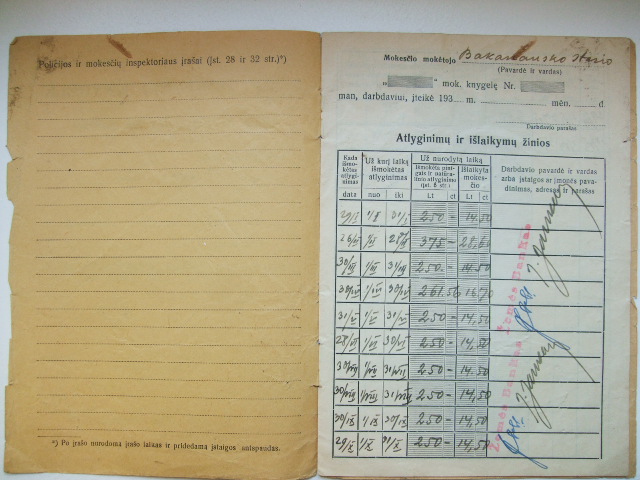 Policijos ir mokesčių inspektoriaus įrašai (Įst. 28 ir 32 str.)*)
*) Po įrašo nurodoma įrašo laikas ir pridedama įstaigos antspaudas.
Mokesčio mokėtojo
(Pavardė ir vardas)
„ “ mok. knygelę Nr.
man, darbdaviui, įteikė 193 m. mėn. d.
Darbdavio parašas
Atlyginimų ir išlaikymų žinios
Kada išmokėtas atlyginimas
Už kurį laiką išmokėtas atlyginimas
Už nurodytą laiką
Išmokėta pinigais ir natūralinio atlyginimo (įst. 6 str.)
Išlaikyta mokesčio
Darbdavio pavardė ir vardas arba įstaigos ar įmonės pavadinimas, adresas ir parašas
data nuo iki Lt ct Lt ct
29/I 1/I 31/I 250 — 14,50
26/II 1/II 28/II 375 — 28,60
30/III 1/III 31/III 250 — 14.50
30/IV 1/IV 30/IV 261.56 16,70
31/V 1/V 31/V 250 — 14,50
28/VI 1/VI 30/VI 250 — 14,50
30/VII 1/VII 31/VII 250 — 14,50
30/VIII 1/VIII 31/VIII 250 — 14,50
30/IX 1/IX 30/IX 250 — 14,50
29/X 1/X 31/X 250 — 14,50
Žemės Bankas
Žemės Bankas